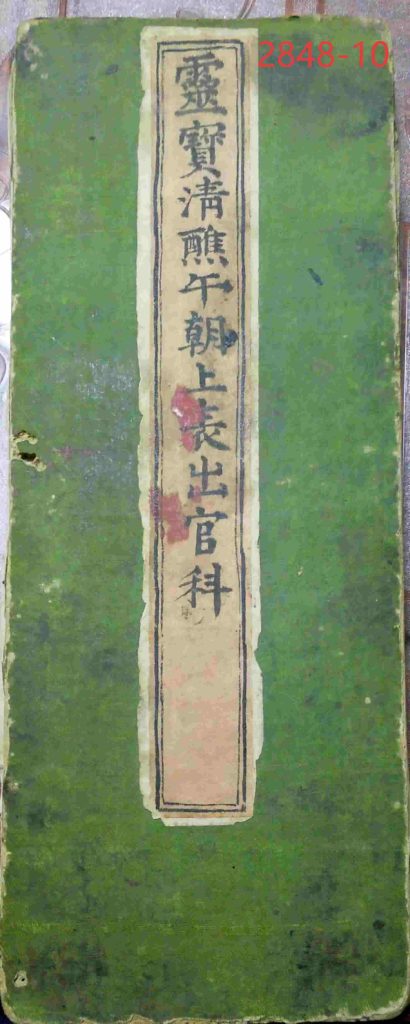 2848-10
靈寶清醮午朝上表出官科